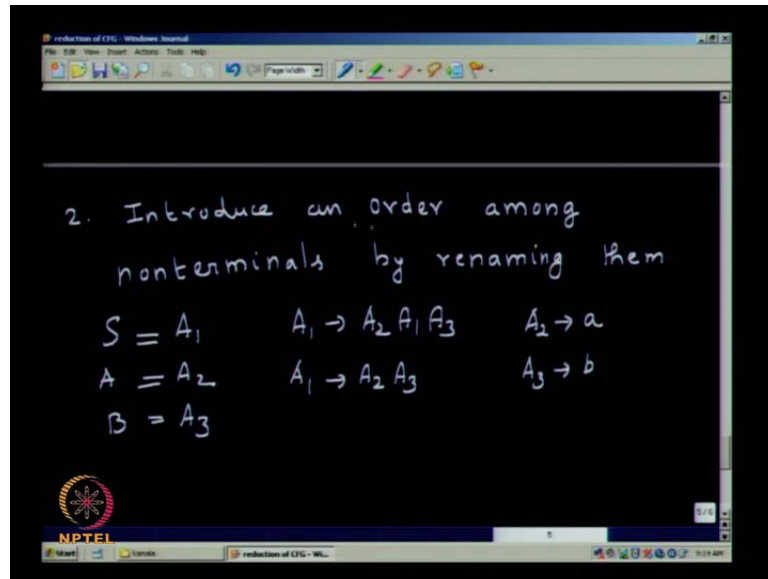 reduction of CFG - Windows Journal
File Edit View Insert Actions Tools Help
Page Width
2. Introduce an order among
nonterminals by renaming them
S = A₁ A₁ → A₂ A₁ A₃ A₂ → a
A = A₂ A₁ → A₂ A₃ A₃ → b
B = A₃
5/6
5
NPTEL
Start kamala reduction of CFG - Wi... 9:19 AM